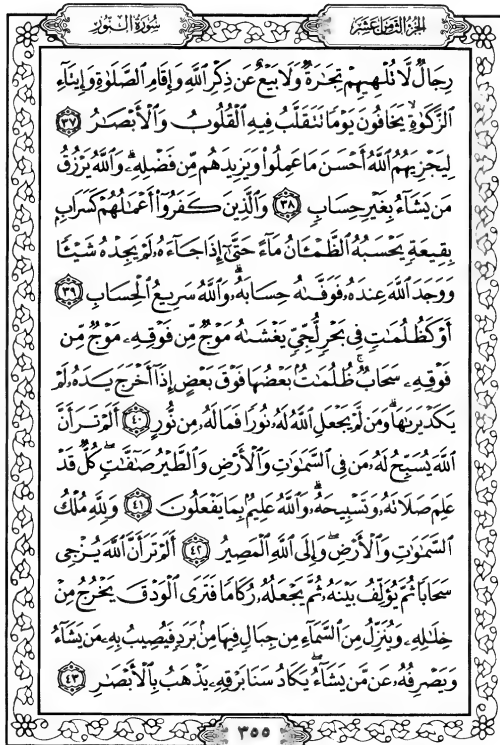 سُورَةُ النُّورِ
الجُزْءُ الثَّامِنَ عَشَرَ
رِجَالٌ لَّا تُلْهِيهِمْ تِجَٰرَةٌ وَلَا بَيْعٌ عَن ذِكْرِ ٱللَّهِ وَإِقَامِ ٱلصَّلَوٰةِ وَإِيتَآءِ
ٱلزَّكَوٰةِ يَخَافُونَ يَوْمًا تَتَقَلَّبُ فِيهِ ٱلْقُلُوبُ وَٱلْأَبْصَٰرُ ٣٧
لِيَجْزِيَهُمُ ٱللَّهُ أَحْسَنَ مَا عَمِلُوا۟ وَيَزِيدَهُم مِّن فَضْلِهِۦ وَٱللَّهُ يَرْزُقُ
مَن يَشَآءُ بِغَيْرِ حِسَابٍ ٣٨ وَٱلَّذِينَ كَفَرُوٓا۟ أَعْمَٰلُهُمْ كَسَرَابٍ
بِقِيعَةٍ يَحْسَبُهُ ٱلظَّمْـَٔانُ مَآءً حَتَّىٰٓ إِذَا جَآءَهُۥ لَمْ يَجِدْهُ شَيْـًٔا
وَوَجَدَ ٱللَّهَ عِندَهُۥ فَوَفَّىٰهُ حِسَابَهُۥ وَٱللَّهُ سَرِيعُ ٱلْحِسَابِ ٣٩
أَوْ كَظُلُمَٰتٍ فِى بَحْرٍ لُّجِّىٍّ يَغْشَىٰهُ مَوْجٌ مِّن فَوْقِهِۦ مَوْجٌ مِّن
فَوْقِهِۦ سَحَابٌ ظُلُمَٰتٌۢ بَعْضُهَا فَوْقَ بَعْضٍ إِذَآ أَخْرَجَ يَدَهُۥ لَمْ
يَكَدْ يَرَىٰهَا وَمَن لَّمْ يَجْعَلِ ٱللَّهُ لَهُۥ نُورًا فَمَا لَهُۥ مِن نُّورٍ ٤٠ أَلَمْ تَرَ أَنَّ
ٱللَّهَ يُسَبِّحُ لَهُۥ مَن فِى ٱلسَّمَٰوَٰتِ وَٱلْأَرْضِ وَٱلطَّيْرُ صَٰٓفَّٰتٍ كُلٌّ قَدْ
عَلِمَ صَلَاتَهُۥ وَتَسْبِيحَهُۥ وَٱللَّهُ عَلِيمٌۢ بِمَا يَفْعَلُونَ ٤١ وَلِلَّهِ مُلْكُ
ٱلسَّمَٰوَٰتِ وَٱلْأَرْضِ وَإِلَى ٱللَّهِ ٱلْمَصِيرُ ٤٢ أَلَمْ تَرَ أَنَّ ٱللَّهَ يُزْجِى
سَحَابًا ثُمَّ يُؤَلِّفُ بَيْنَهُۥ ثُمَّ يَجْعَلُهُۥ رُكَامًا فَتَرَى ٱلْوَدْقَ يَخْرُجُ مِنْ
خِلَٰلِهِۦ وَيُنَزِّلُ مِنَ ٱلسَّمَآءِ مِن جِبَالٍ فِيهَا مِنۢ بَرَدٍ فَيُصِيبُ بِهِۦ مَن يَشَآءُ
وَيَصْرِفُهُۥ عَن مَّن يَشَآءُ يَكَادُ سَنَا بَرْقِهِۦ يَذْهَبُ بِٱلْأَبْصَٰرِ ٤٣
٣٥٥